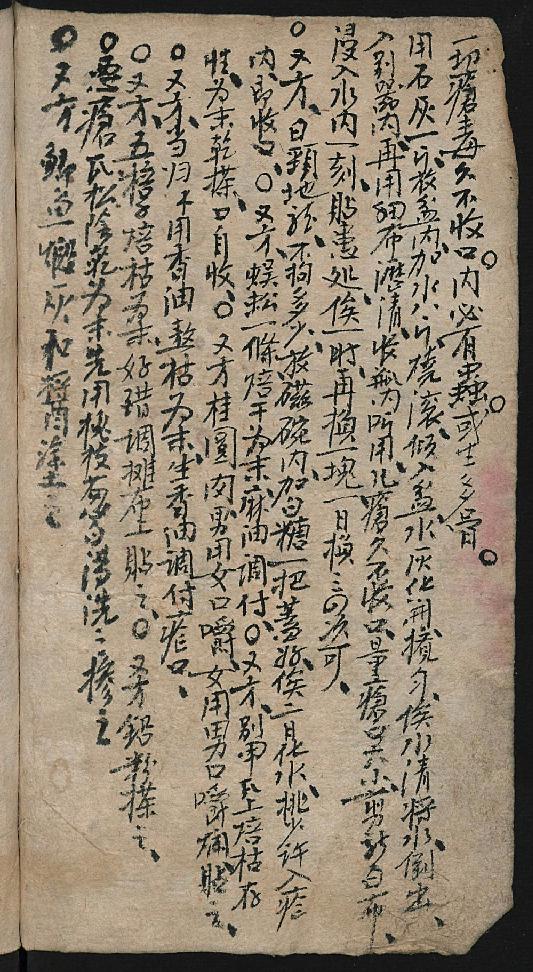 一切瘡毒久不收口內必有虫或生多骨
用石灰一斤放盆內加水八斤燒滾傾入盆水灰化開攪勻俟水清將水倒出
入別器內再用細布瀝清收瓶內听用凡瘡久不收口量瘡口大小剪新白布
浸入水內一刻貼患処俟一時再換一塊一日換三四次可
○又方白頸地龍不拘多少放磁碗內加白糖一把蓋好俟二日化水挑少許入瘡
內即收口○又方蜈蚣一條焙干為末麻油調付○又方別甲瓦上焙枯存
性為末乾搽口自收○又方桂圓肉男用女口嚼女用男口嚼爛貼之
○又方当归不用香油熬枯為末生香油調付瘡口
○又方五棓子焙枯為末好醋調攤布上貼之○又方鉛粉搽之
○悪瘡瓦松陰乾為末先用槐枝葱白湯洗之摻之
○又方鯽魚燬灰和醬涂之